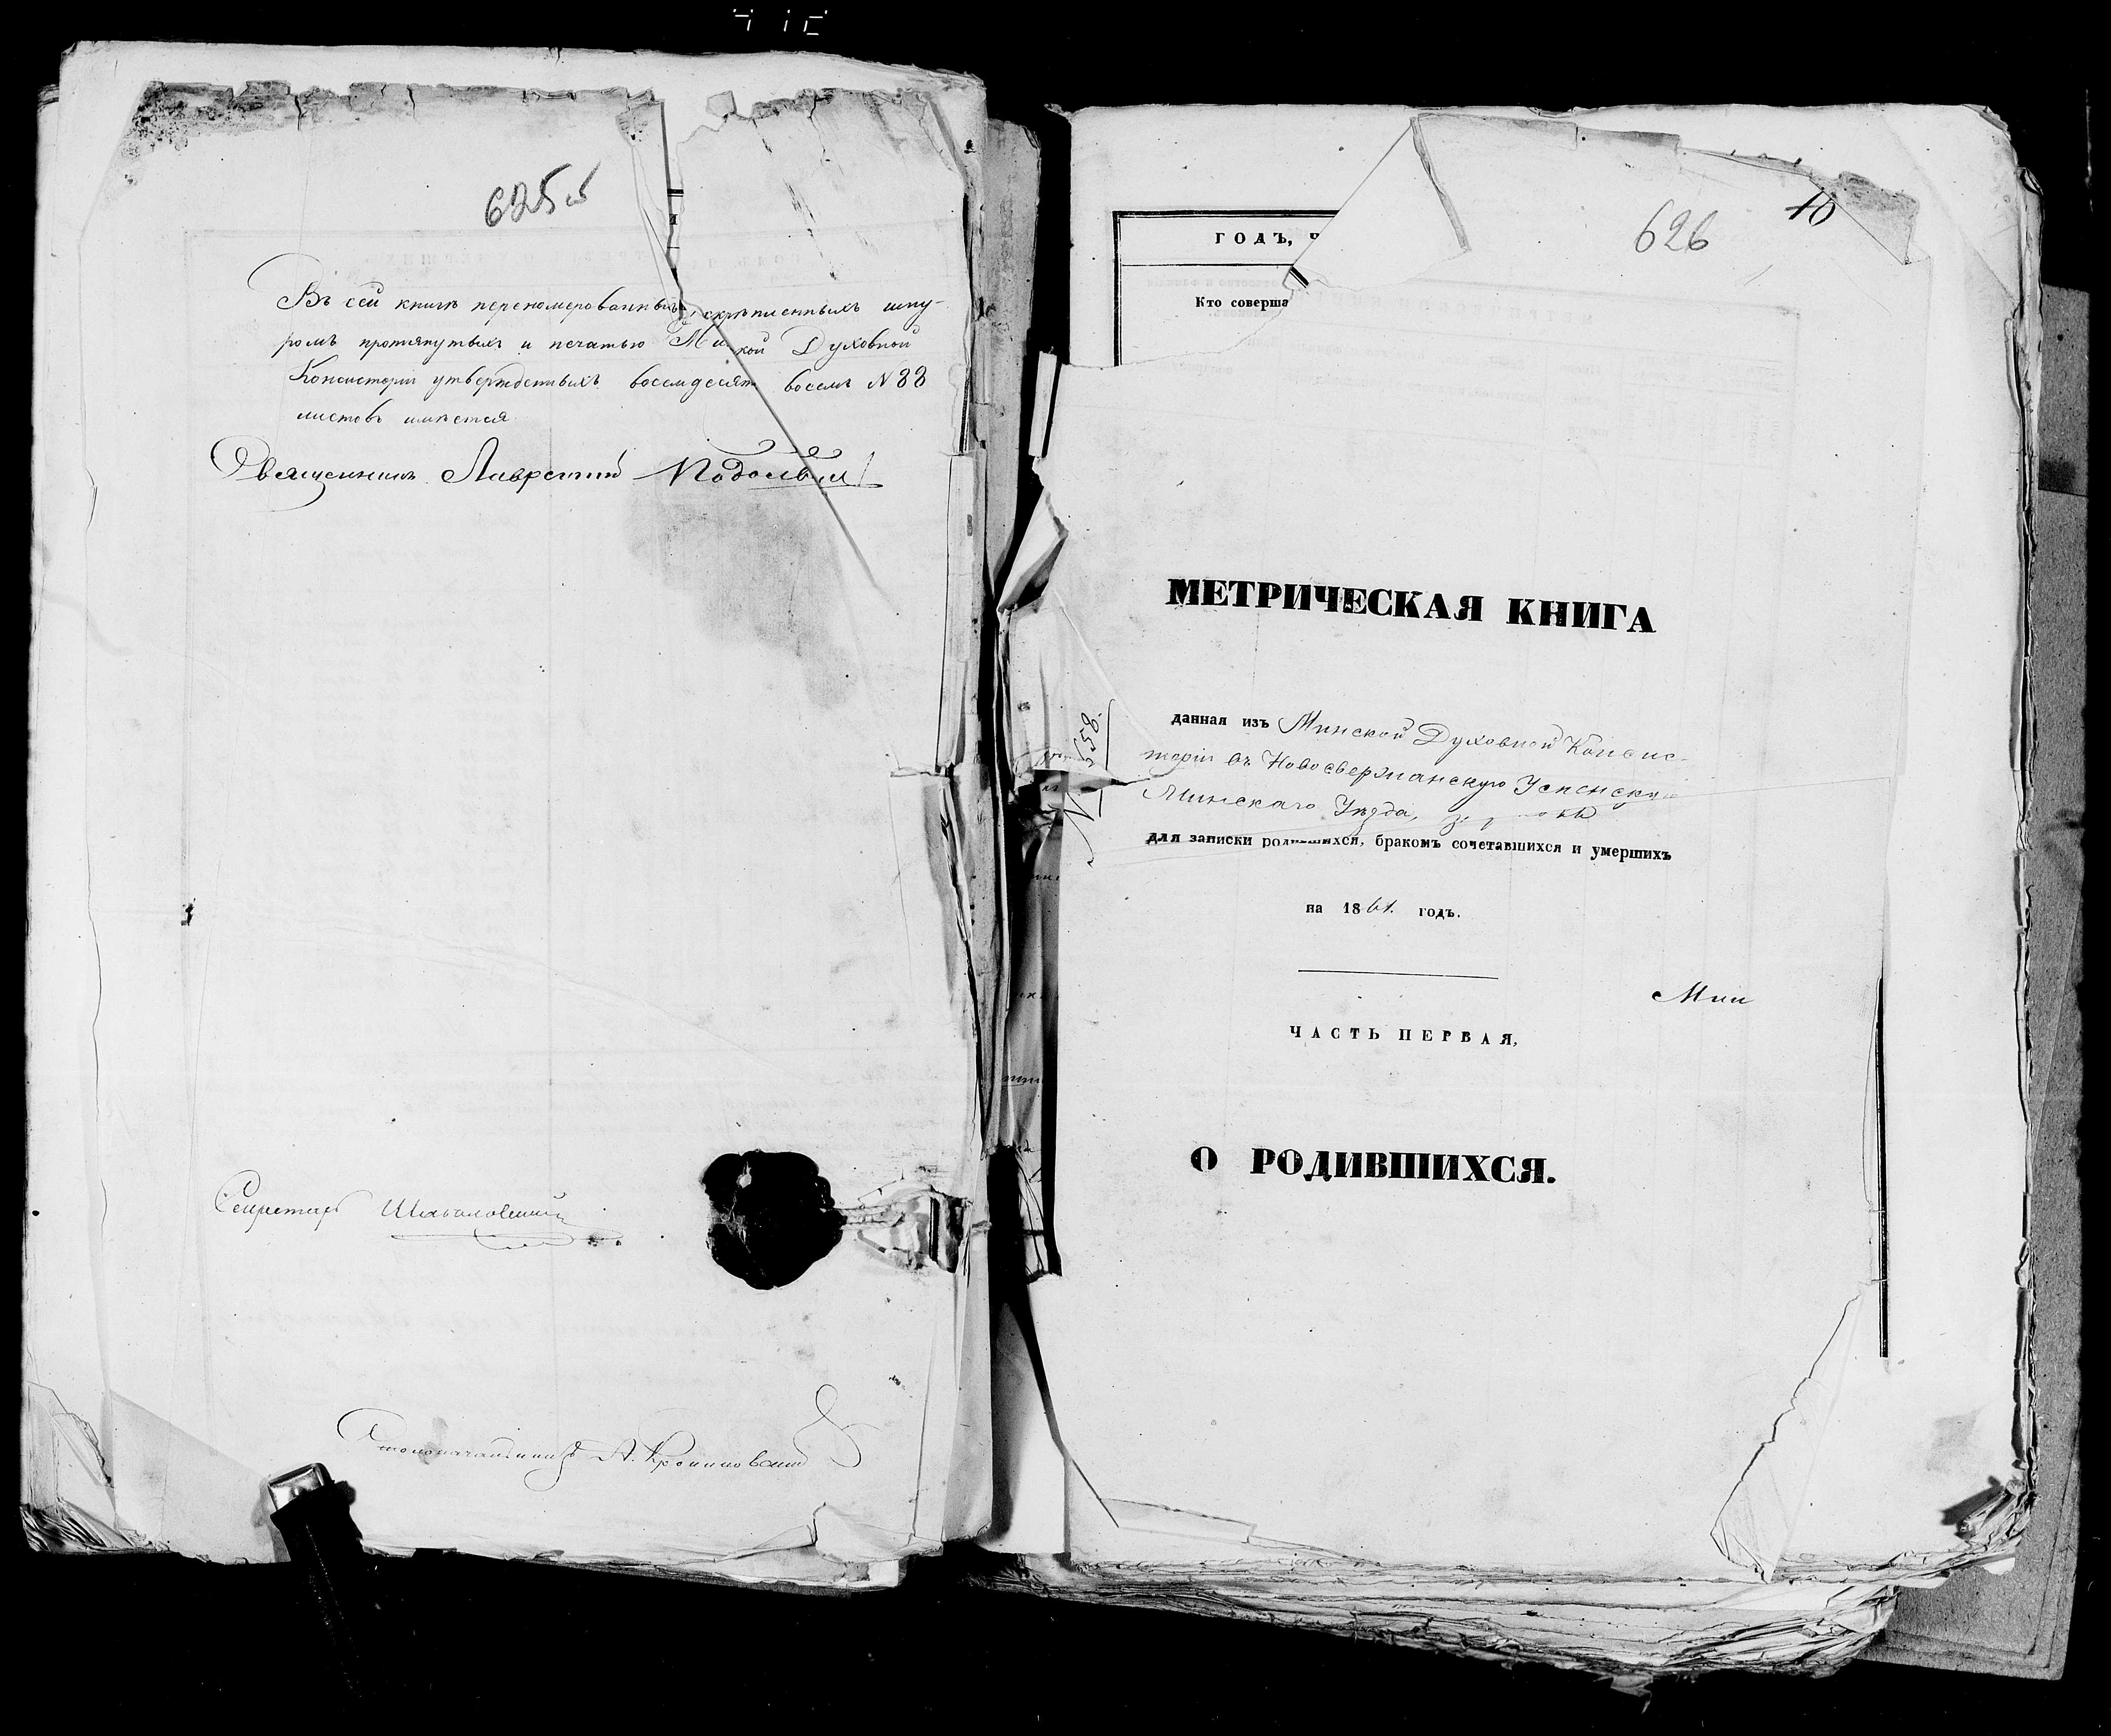 625
Въ сей книгѣ перенумерованныхъ, скрѣпленныхъ шну-
ромъ протянутыхъ и печатью Ми кой Духовной
Консисторіи утвержденныхъ восемдесятъ восемь N 88
листовъ имѣется
Священникъ Лаврентій
Секретарь
Столоначальникъ А.
626
10
ГОДЪ, Ч
Кто соверша
МЕТРИЧЕСКАЯ КНИГА
N 658.
данная изъ Минской Духовной Консис-
торіи въ Новосвержанскую Успенскую
Минскаго Уѣзда,
для записки родившихся, бракомъ сочетавшихся и умершихъ
на 1861. годъ.
Мин
ЧАСТЬ ПЕРВАЯ,
О РОДИВШИХСЯ.